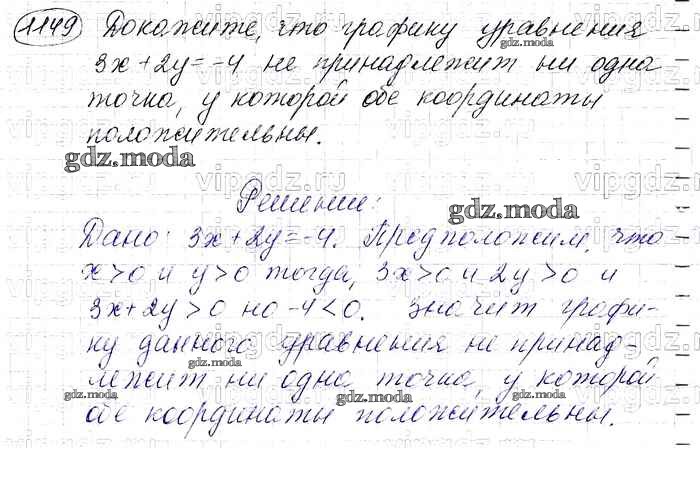 1149 Докажите, что графику уравнения
gdz.moda
3x+2y=-4 не принадлежит ни одна
точка, у которой обе координаты
vipgdz.ru
положительны.
gdz.moda
vipgdz.ru
Решение:
gdz.moda
Дано: 3x+2y=-4. Предположим, что
x>0 и y>0 тогда, 3x>0 и 2y>0 и
3x+2y>0 но -4<0. Значит графи-
ку данного уравнения не принад-
gdz.moda
лежит ни одна точка, у которой
gdz.moda gdz.moda
обе координаты положительны.
gdz.moda